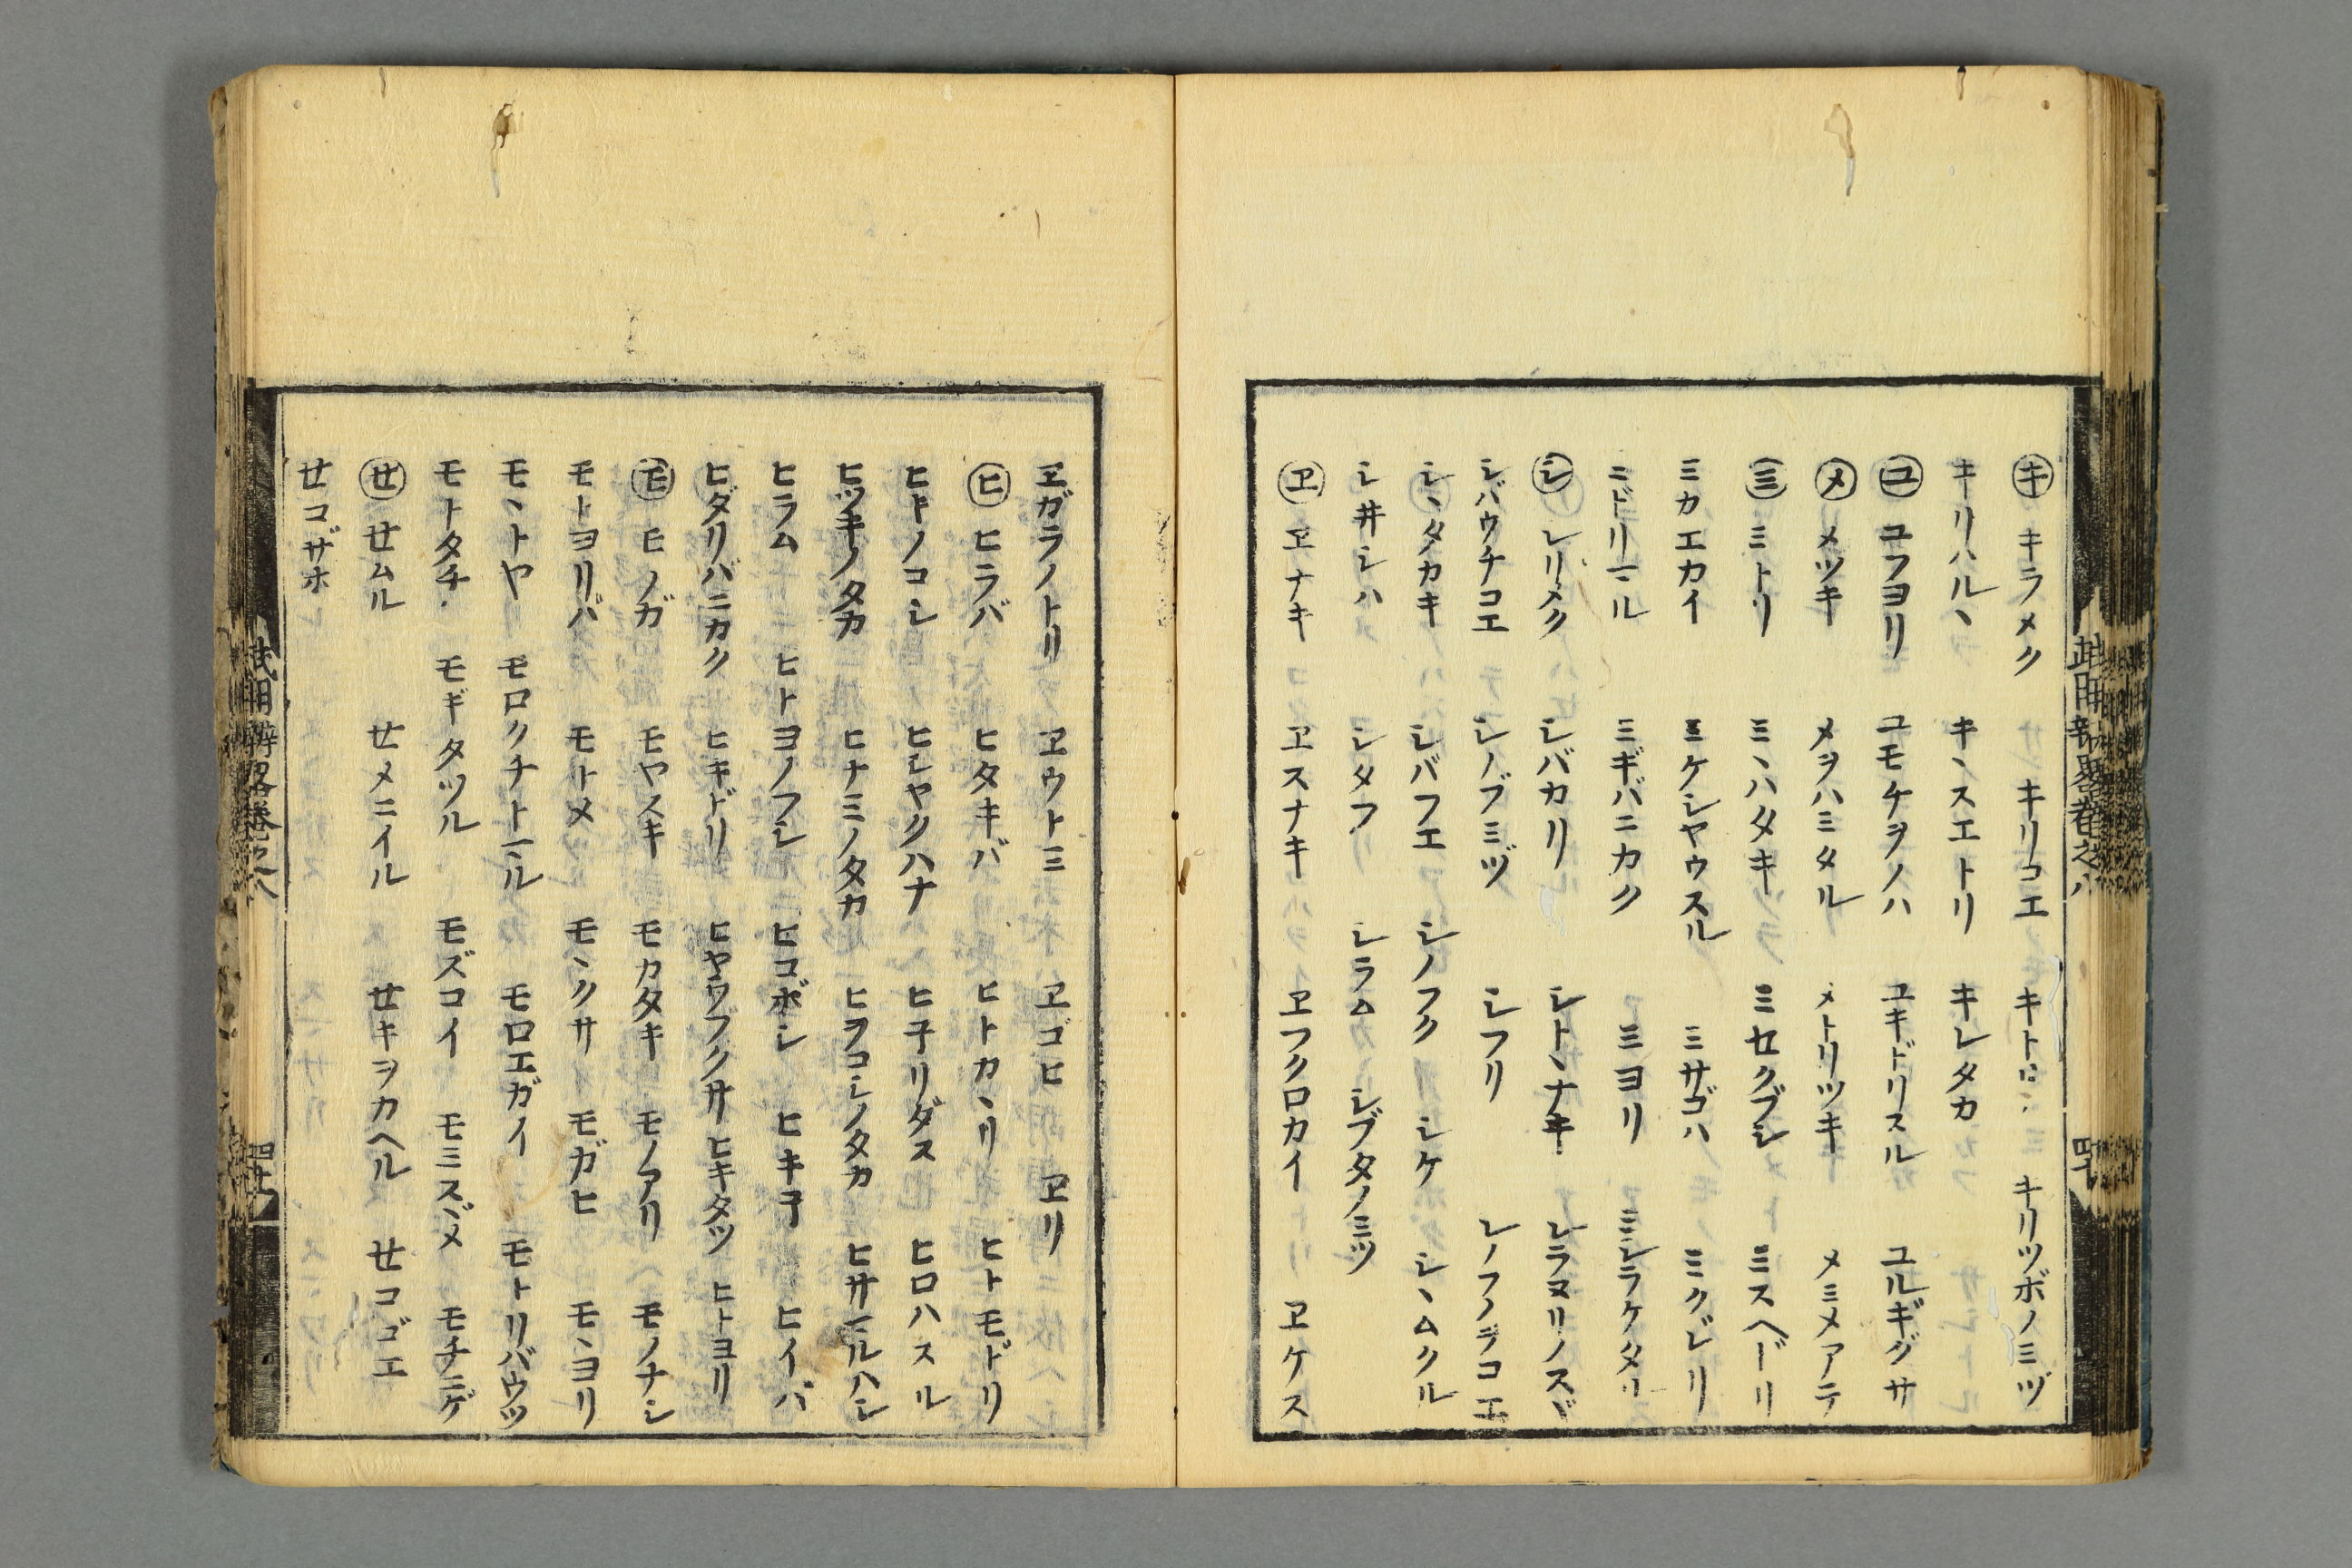 ㋖ キラメク キリコエ キリツボノミヅ
キリハルヽ キヽスエトリ キレタカ
㋴ ユフヨリ ユモチヲノハ ユキドリスル ユルギグサ
㋱ メツキ メヲハミタル メトリツキ メミメアテ
㋯ ミトリ ミヽハタキ ミセクブシ ミスヘドリ
ミカエカイ ミケシヤウスル ミサゴハ ミクレリ
ニドリニル ミギバニカク ミヨリ ミシラケタリ
㋛ シリメク シバカリ シトヽナキ シラヌリノスヾ
シバウチコエ シノブミヅ シフリ シノフノヲコエ
シヽタカキ シバフエ シノフク シケ シヽムクル
シ井シハ シタフ シラム シブタノミツ
㋽ ヱナキ ヱスナキ ヱフクロカイ ヱケス
武用辨畧巻之八
四十七
ヱガラノトリ ヱウトミ ヱゴヒ ヱリ
㋪ ヒラバ ヒタキバ ヒトカヽリ ヒトモドリ
ヒトノコシ ヒシヤクハナ ヒヲリダス ヒロハスル
ヒツキノタカ ヒナミノタカ ヒヲコシノタカ ヒサシルハシ
ヒラム ヒトヨノフシ ヒコボシ ヒキヲ ヒイバ
ヒダリバニカク ヒキドリ ヒヤウフクサ ヒキタツ ヒトヨリ
㋲ モノガ モヤスキ モカタキ モノアリ モノナシ
モトヨリバ モトメ モヽクサ モガヒ モヽヨリ
モヽトヤ モロクチトニル モロエガイ モトリバウツ
モトタチ モギタツル モズコイ モミスヾメ モチニゲ
㋝ セムル セメニイル セキヲカヘル セコゴエ
セコザホ
武用辨畧巻之八